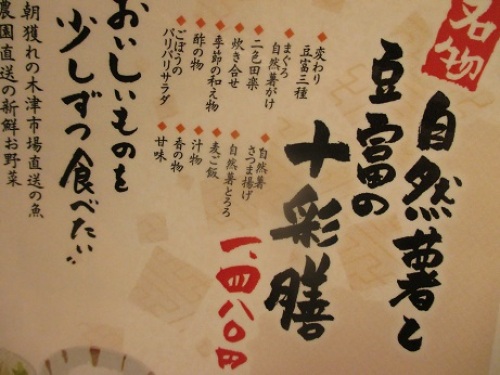 名物
自然薯と
豆富の
十彩膳
一、四八〇円
変わり
豆富三種
まぐろ
自然薯がけ
二色田楽
炊き合せ
季節の和え物
酢の物
ごぼうの
パリパリサラダ
自然薯
さつま揚げ
自然薯とろろ
麦ご飯
汁物
香の物
甘味
おいしいものを
少しずつ食べたい
朝獲れの木津市場直送の魚
農園直送の新鮮お野菜